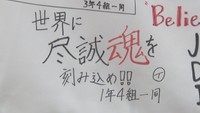 3年4組一同
世界に
尽誠魂を
刻み込め!!
1年4組一同
"Belie